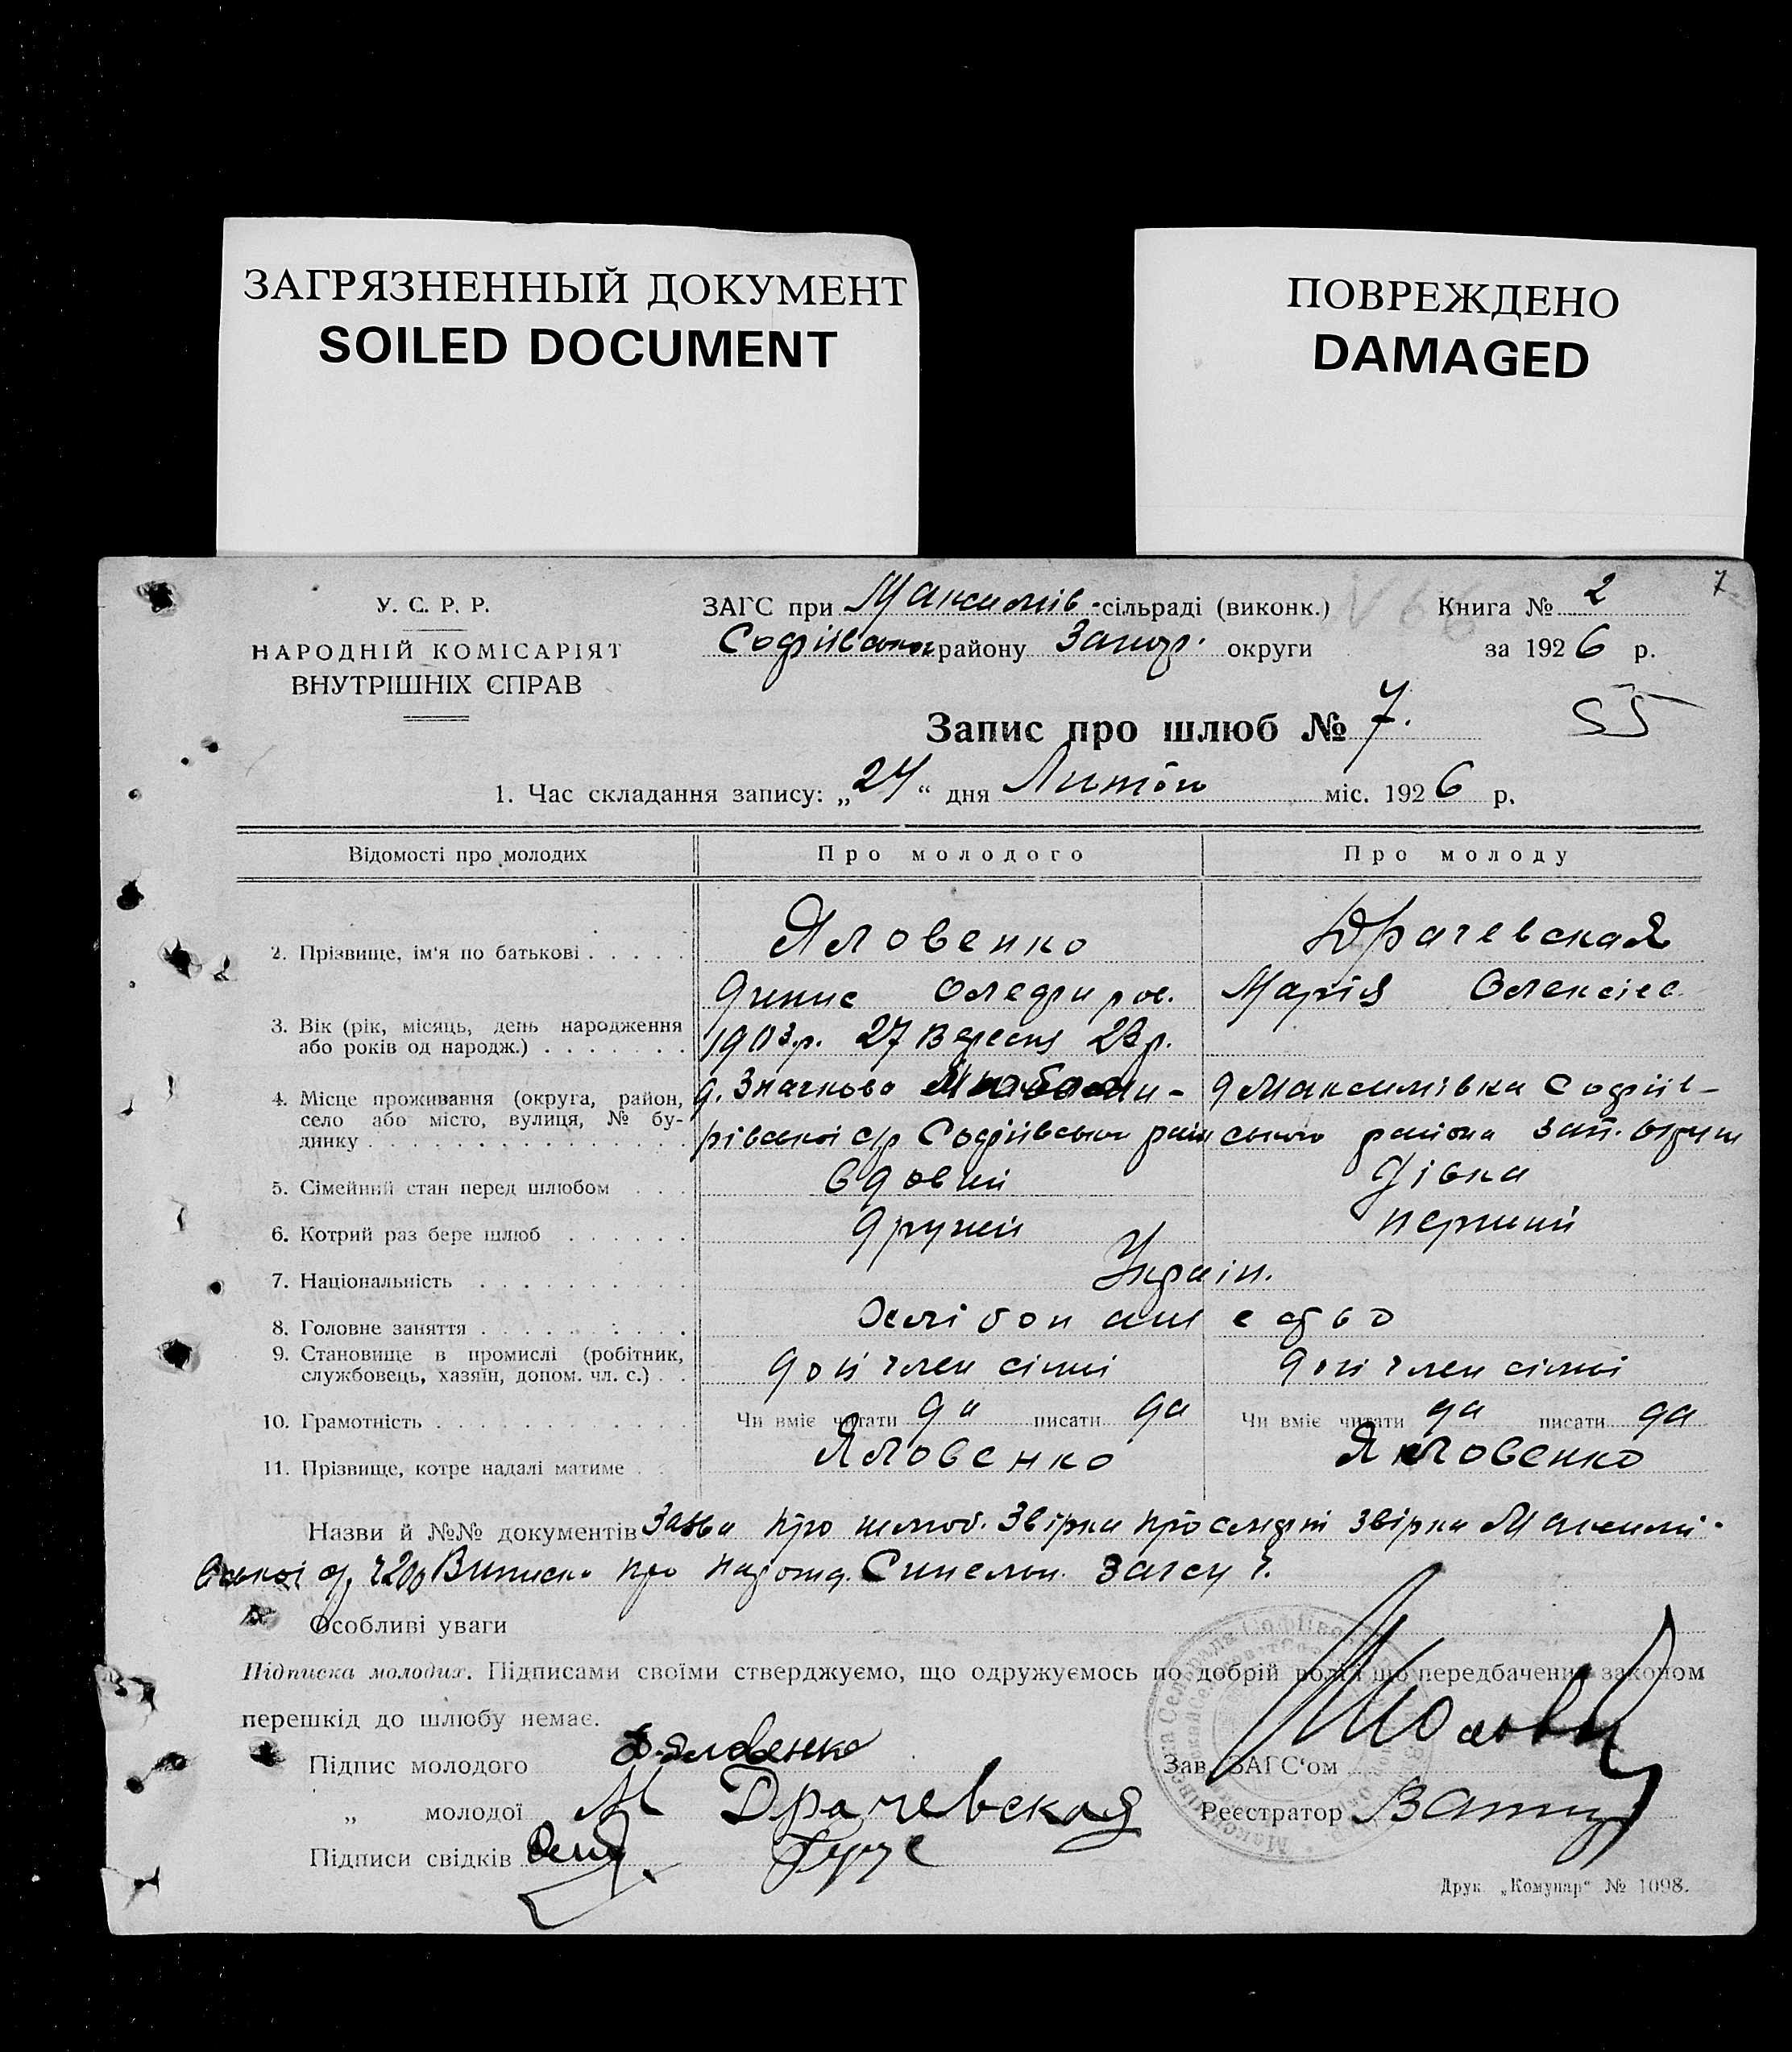 ЗАГРЯЗНЕННЫЙ ДОКУМЕНТ
SOILED DOCUMENT
ПОВРЕЖДЕНО
DAMAGED
7
У. С. Р. Р.
НАРОДНІЙ КОМІСАРІЯТ
ВНУТРІШНІХ СПРАВ
ЗАГС при Максимів-сільраді (виконк.)
Софіївського району Запор. округи
Книга № 2
за 1926 р.
Запис про шлюб № 7.
55
1. Час складання запису: „24“ дня Лютого міс. 1926 р.
Відомості про молодих Про молодого Про молоду
2. Прізвище, ім'я по батькові Яловенко Драчевская
Олефиров. Марія Олексієв
3. Вік (рік, місяць, день народження
або років од народж.) 1903 р. 27 Вересня 23 р.
4. Місце проживання (округа, район, д. Значково д Максимівка Софіїв-
село або місто, вулиця, № бу-
динку рівської с/р Софіївського рай ського района Зап. округи
5. Сімейний стан перед шлюбом вдовий дівка
6. Котрий раз бере шлюб другий перший
7. Національність Україн.
8. Головне заняття Хлібопашество
9. Становище в промислі (робітник,
службовець, хазяїн, допом. чл. с.) доп член сімї доп член сімї
10. Грамотність Чи вміє читати да писати да Чи вміє читати да писати да
11. Прізвище, котре надалі матиме Яловенко Яловенко
Назви й №№ документів Заява про шлюб. Звірка про звірка Максимі-
вської Виписка про народж. Синельн. Загсу
Особливі уваги
Підписка молодих. Підписами своїми стверджуємо, що одружуємось по добрій волі і що передбачених законом
перешкід до шлюбу немає.
Підпис молодого Яловенко
Зав. ЗАГС'ом
„ молодої М Драчевская
Реєстратор
Підписи свідків
Друк. „Комунар“ № 1098.